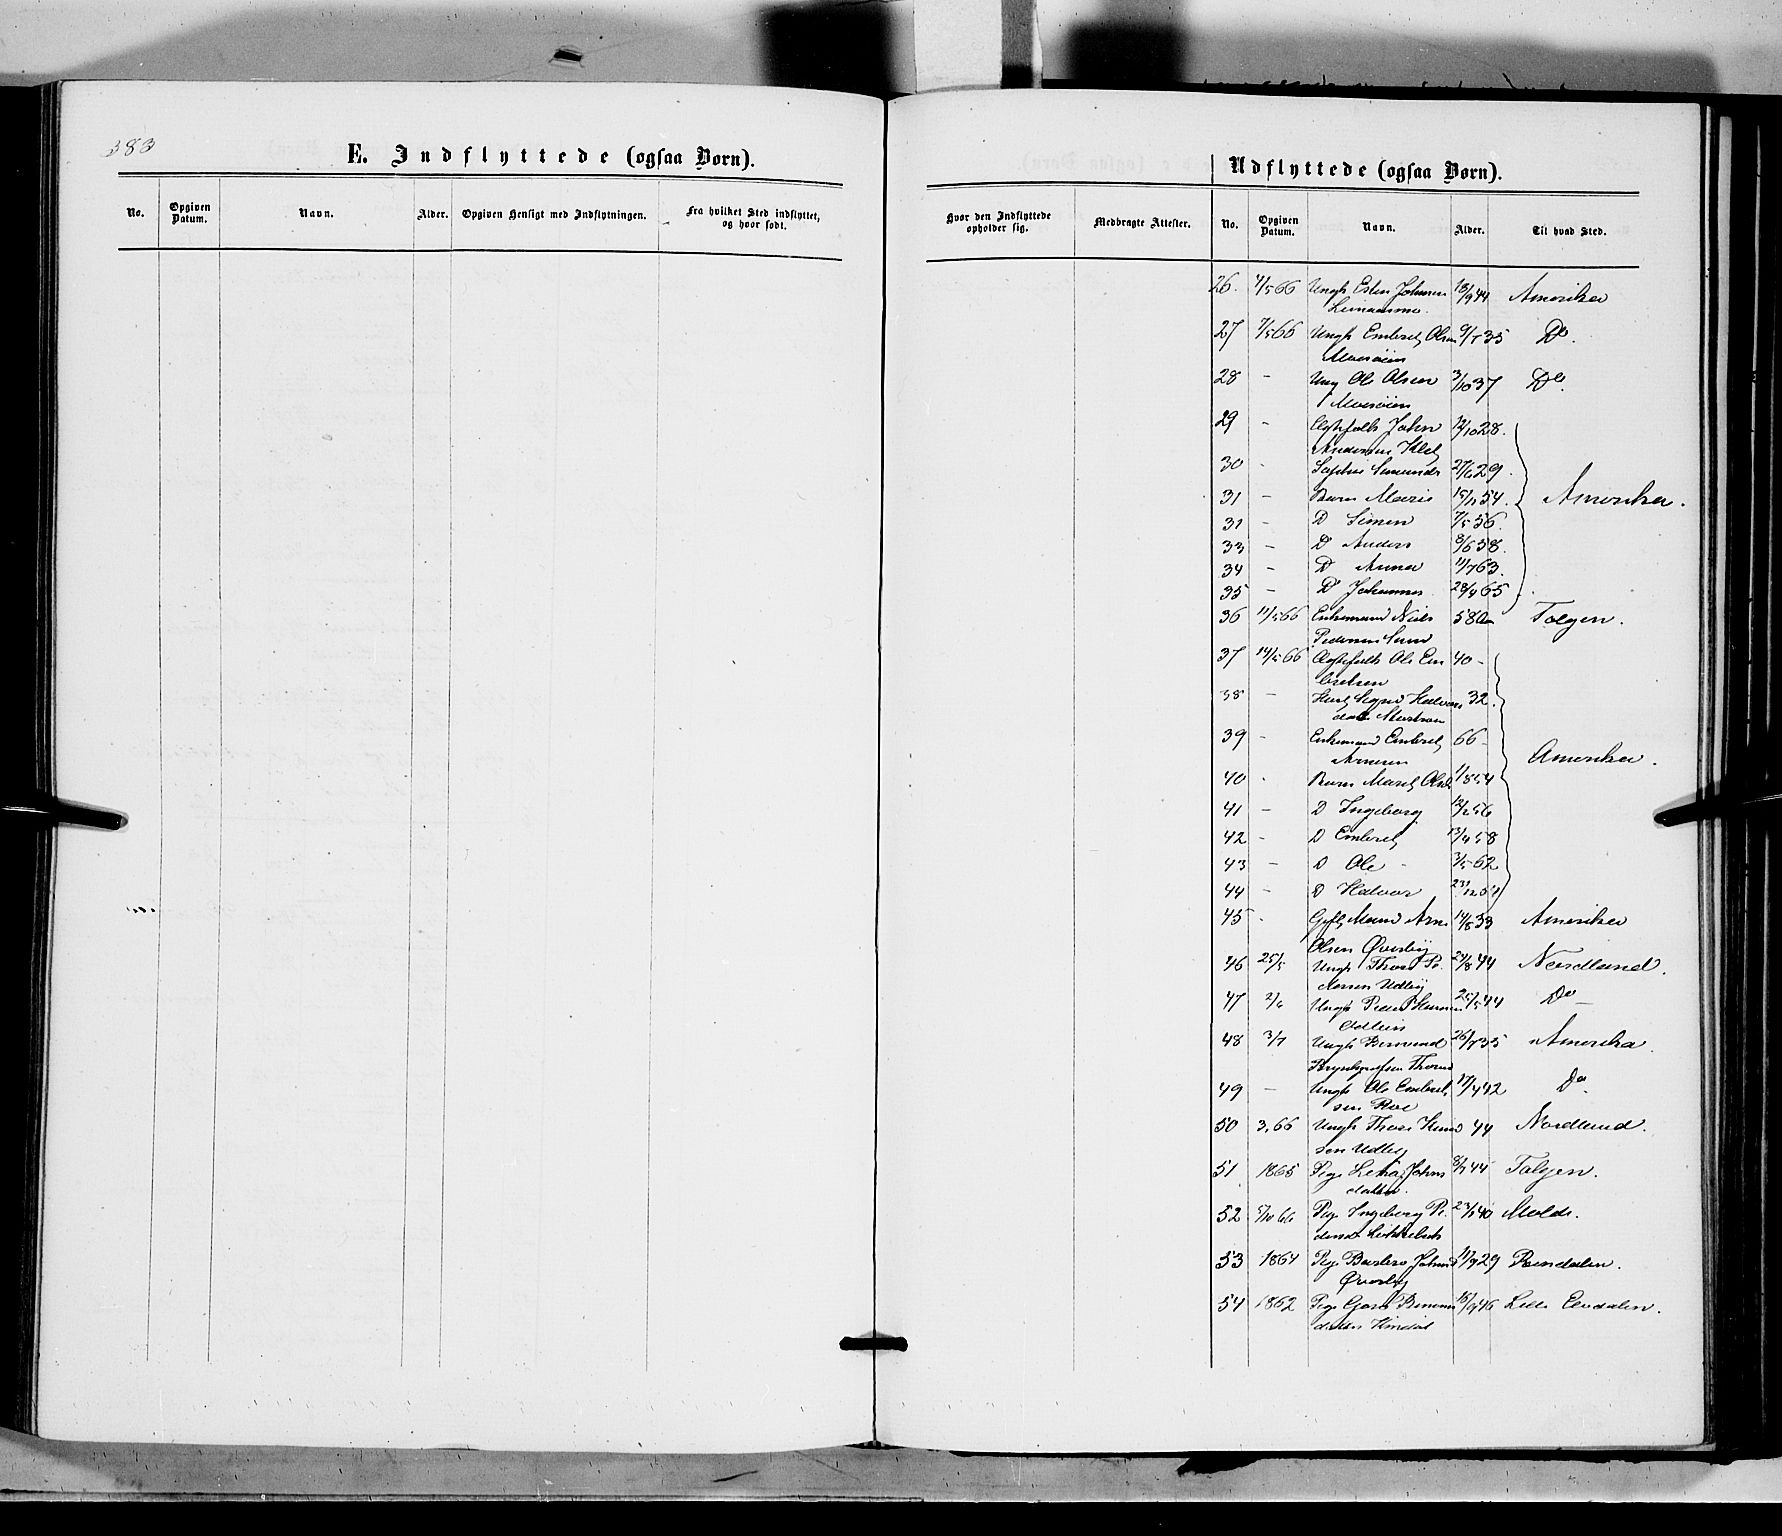 383
E. Indflyttede (ogsaa Børn).
No.
Opgiven Datum.
Navn.
Alder.
Opgiven Hensigt med Indflytningen.
Fra hvilket Sted indflyttet, og hvor født.
Udflyttede (ogsaa Børn).
Hvor den Indflyttede opholder sig.
Medbragte Attester.
No.
Opgiven Datum.
Navn.
Alder.
Til hvad Sted.
26. 4/5 66 Ungk Esten Johnsen 18/9 44 Amerika
27 7/5 66 Ungk Embret Olsen 35 Do.
Moseøien
28 - Ung Ole Olsen 3/10 37 Do.
Moseøien
29 - Ægtefolk John 12/10 28.
Andersen
30 - Sophie 27/6 29.
31 - Barn Marie 15/11 54. Amerika.
31 - D Simen 7/5 56.
33 - D Anders 8/6 58.
34 - D Anna 11/7 63.
35 - D Johannes 28/4 65
36 11/5 66 Enkemand Niels 58 Tolgen.
Pedersen
37 14/5 66 Ægtefolk Ole Em 40 -
bretsen
38 - Halvors 32.
39 - Enkemand Embret 66 - Amerika.
Arnesen
40 - Barn Marit Olsd 1/8 54
41 - D Ingeborg 12/2 56
42 - D Embret 13/4 58
43 - D Ole 3/5 62
44 - D Halvor
45 - Gift Mand Arne 14/8 33 Amerika
Olsen Øverby
46 25/5 Ungk Thore Pe. 24/8 44 Nordland.
dersen Udby
47 2/6 Ungk Peder 25/5 44 Do
48 3/7 Ungk 26/7 35 Amerika.
49 - Ungk Ole Embret 17/4 42 Do
sen Roe
50 3. 66 Ungk Thore 44 Nordland.
sen Udby
51 1865 Pige Lena Johns 8/1 44 Tolgen.
datter.
52 5/10 66 Pige Ingeborg Pe. 23/1 40 Molde.
53 1864 Pige Barbro Johnsd 11/9 29 Rendalen.
Øverby
54 1862 Pige 16/9 46 Lille Elvdalen.
datter